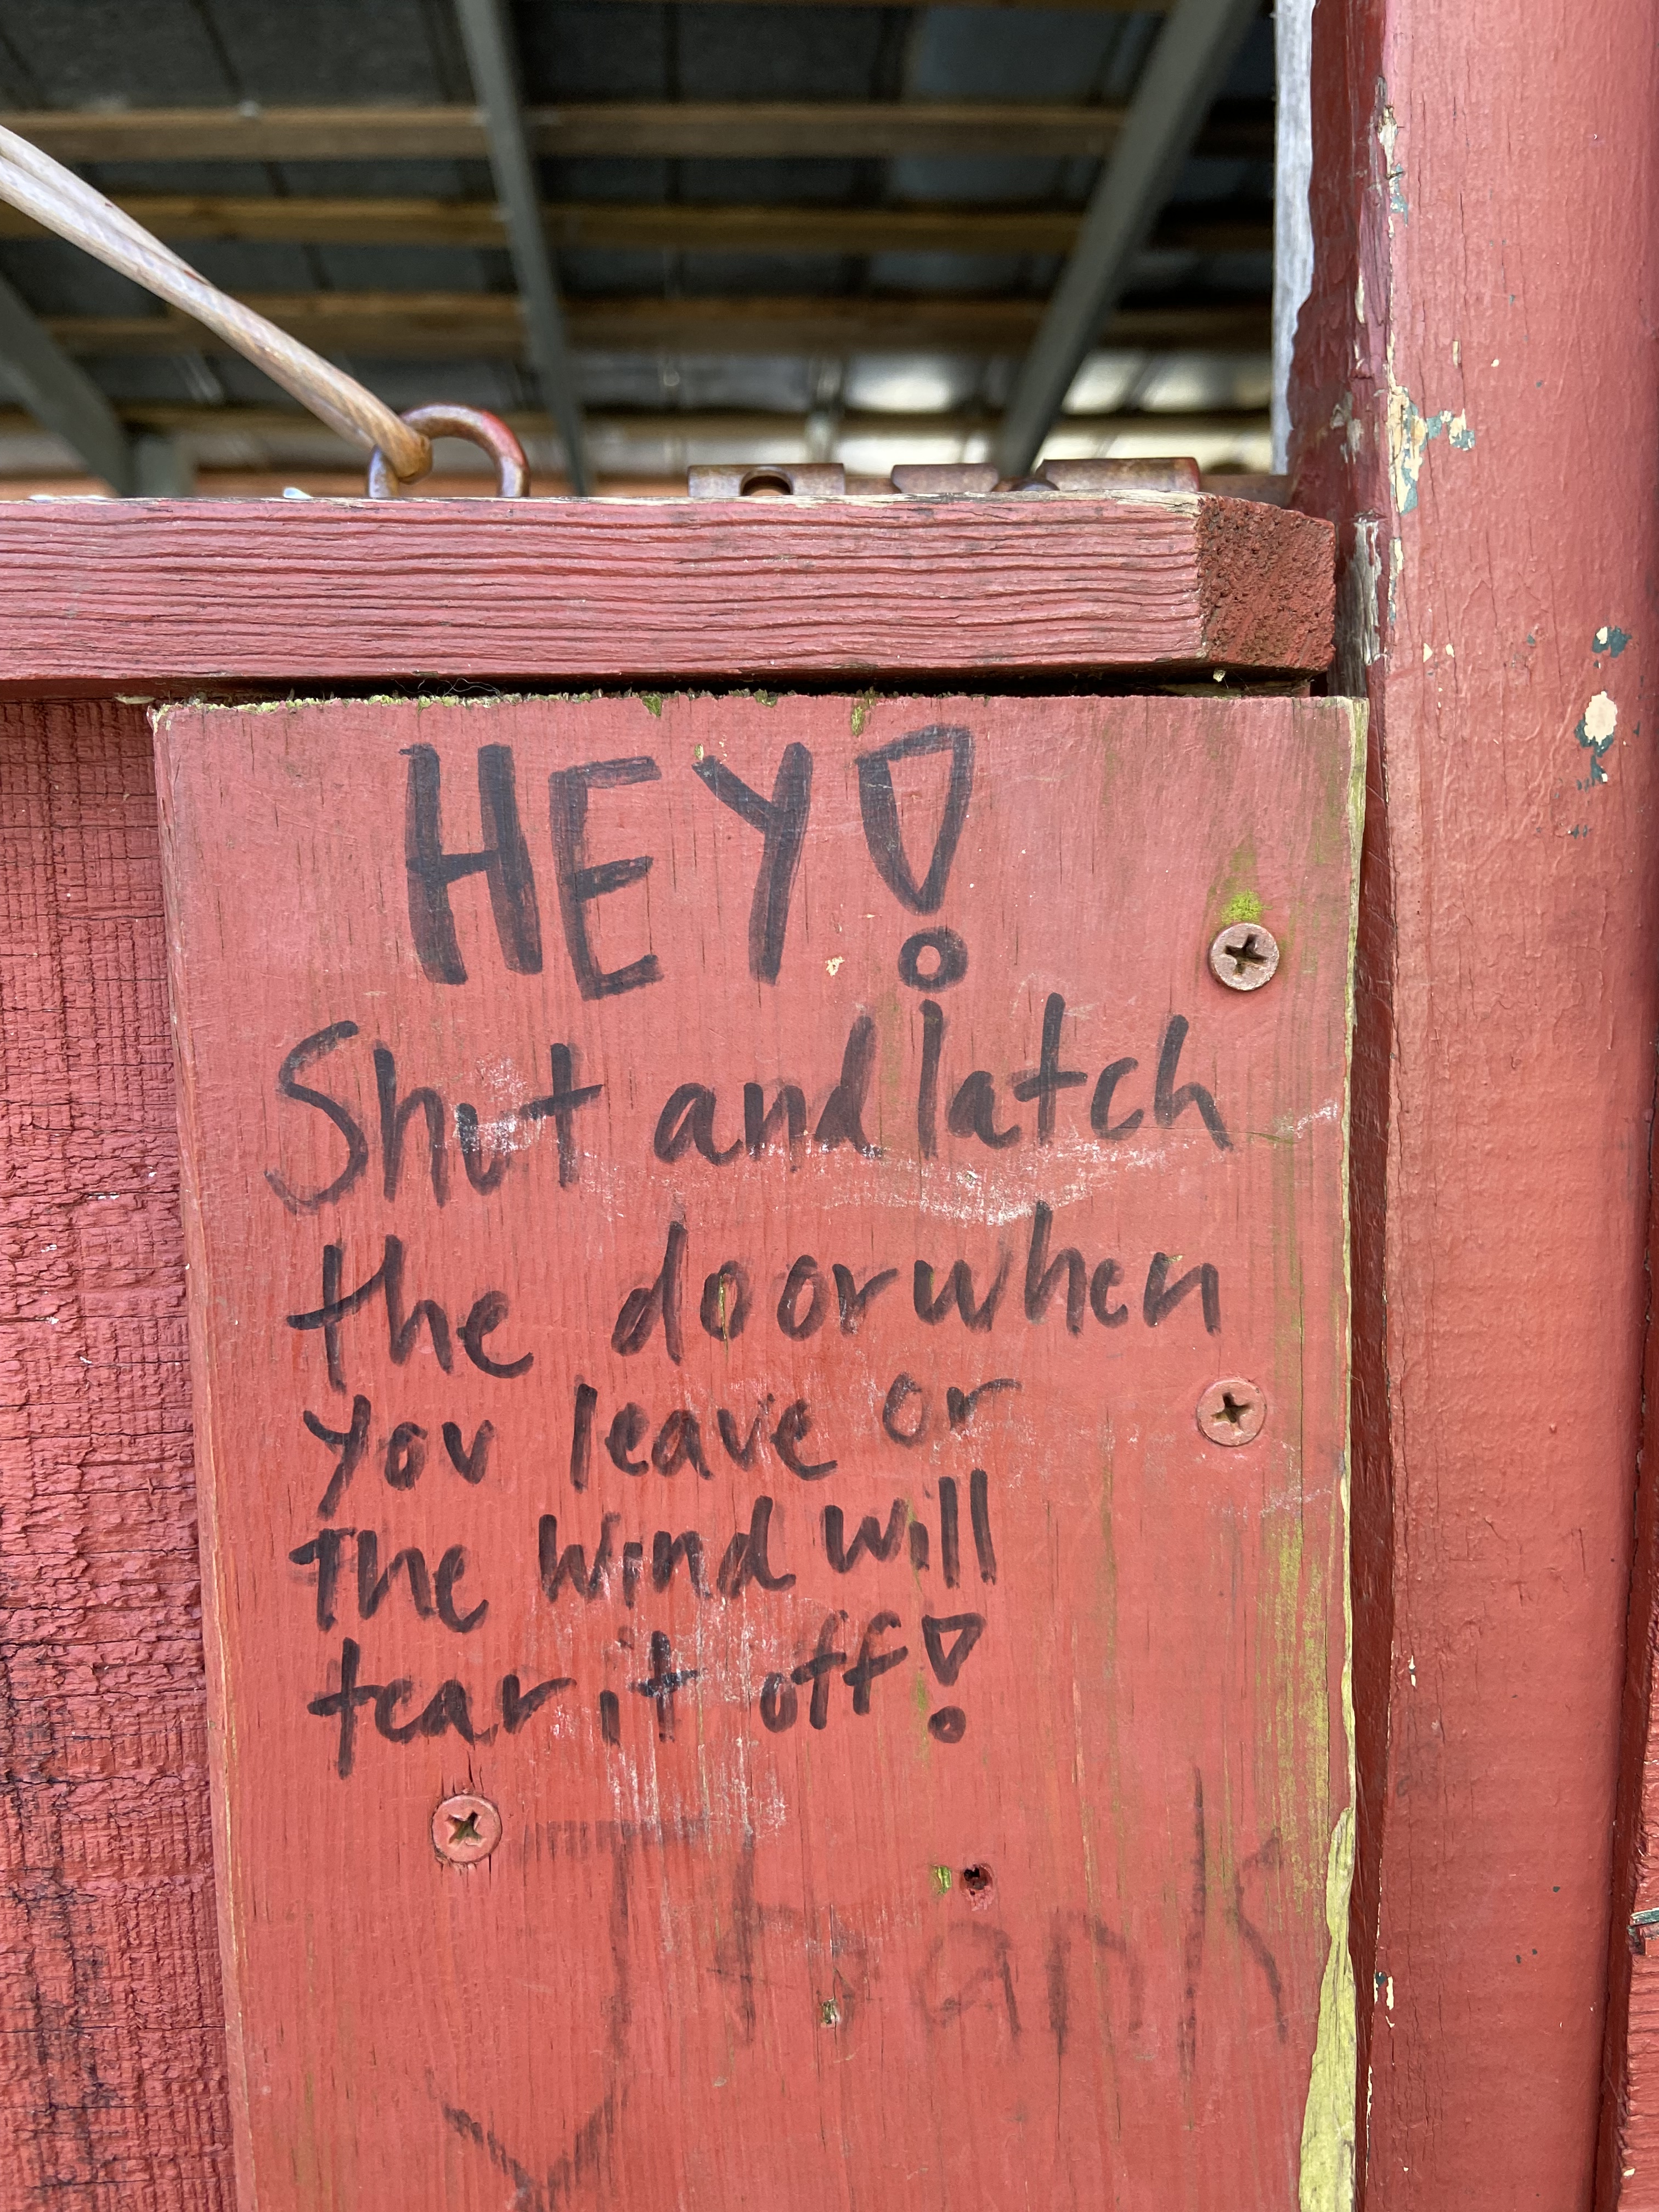 HEY!
Shut and latch
the door when
you leave or
the wind will
tear it off!
Thank